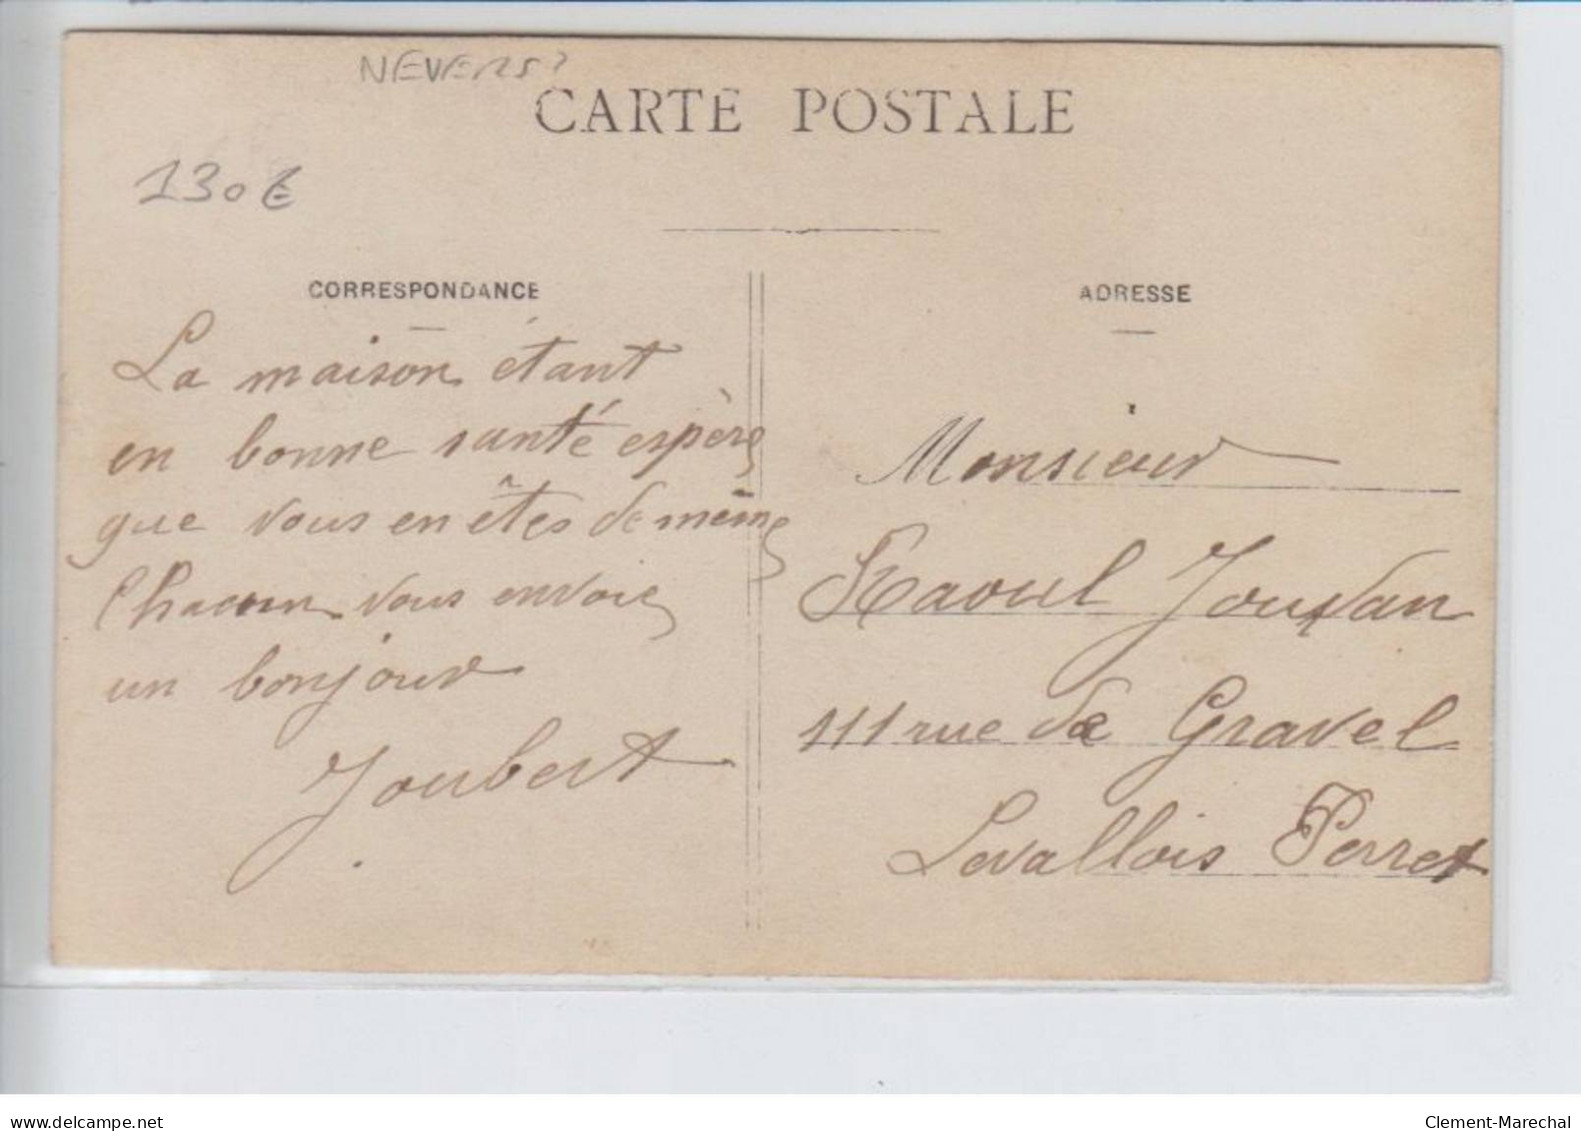 NEVERS?
CARTE POSTALE
130€
CORRESPONDANCE
La maison étant
en bonne santé espère
que vous en êtes de même
Chacun vous envoie
un bonjour
Joubert
ADRESSE
Monsieur
Raoul Jourdan
111 rue de Gravel
Levallois Perret
www.delcampe.net
Clement-Marechal